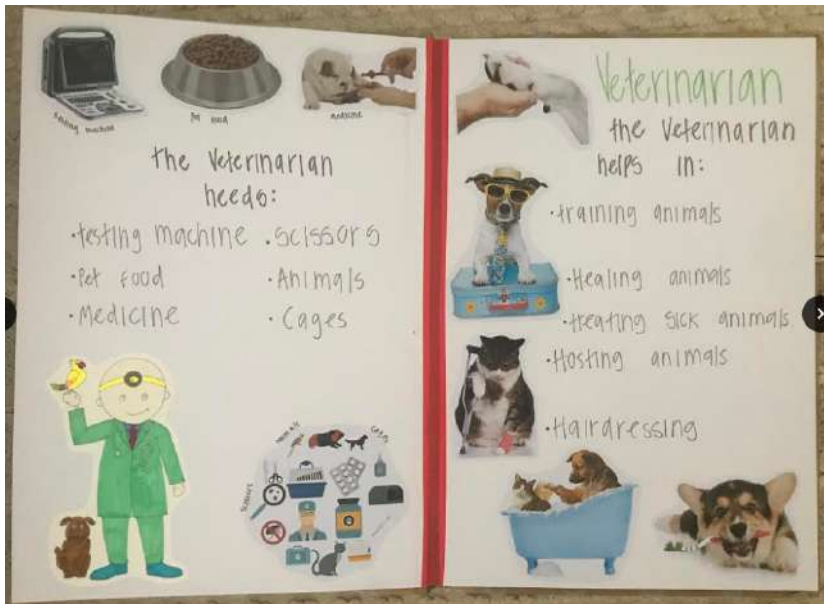 testing machine
Pet food
medicine
the Veterinarian
needs:
•testing machine •Scissors
•Pet food •Animals
•Medicine •Cages
Animals
Cages
Scissors
Veterinarian
the Veterinarian
helps in:
•training animals
•Healing animals
•treating sick animals
•Hosting animals
•Hairdressing